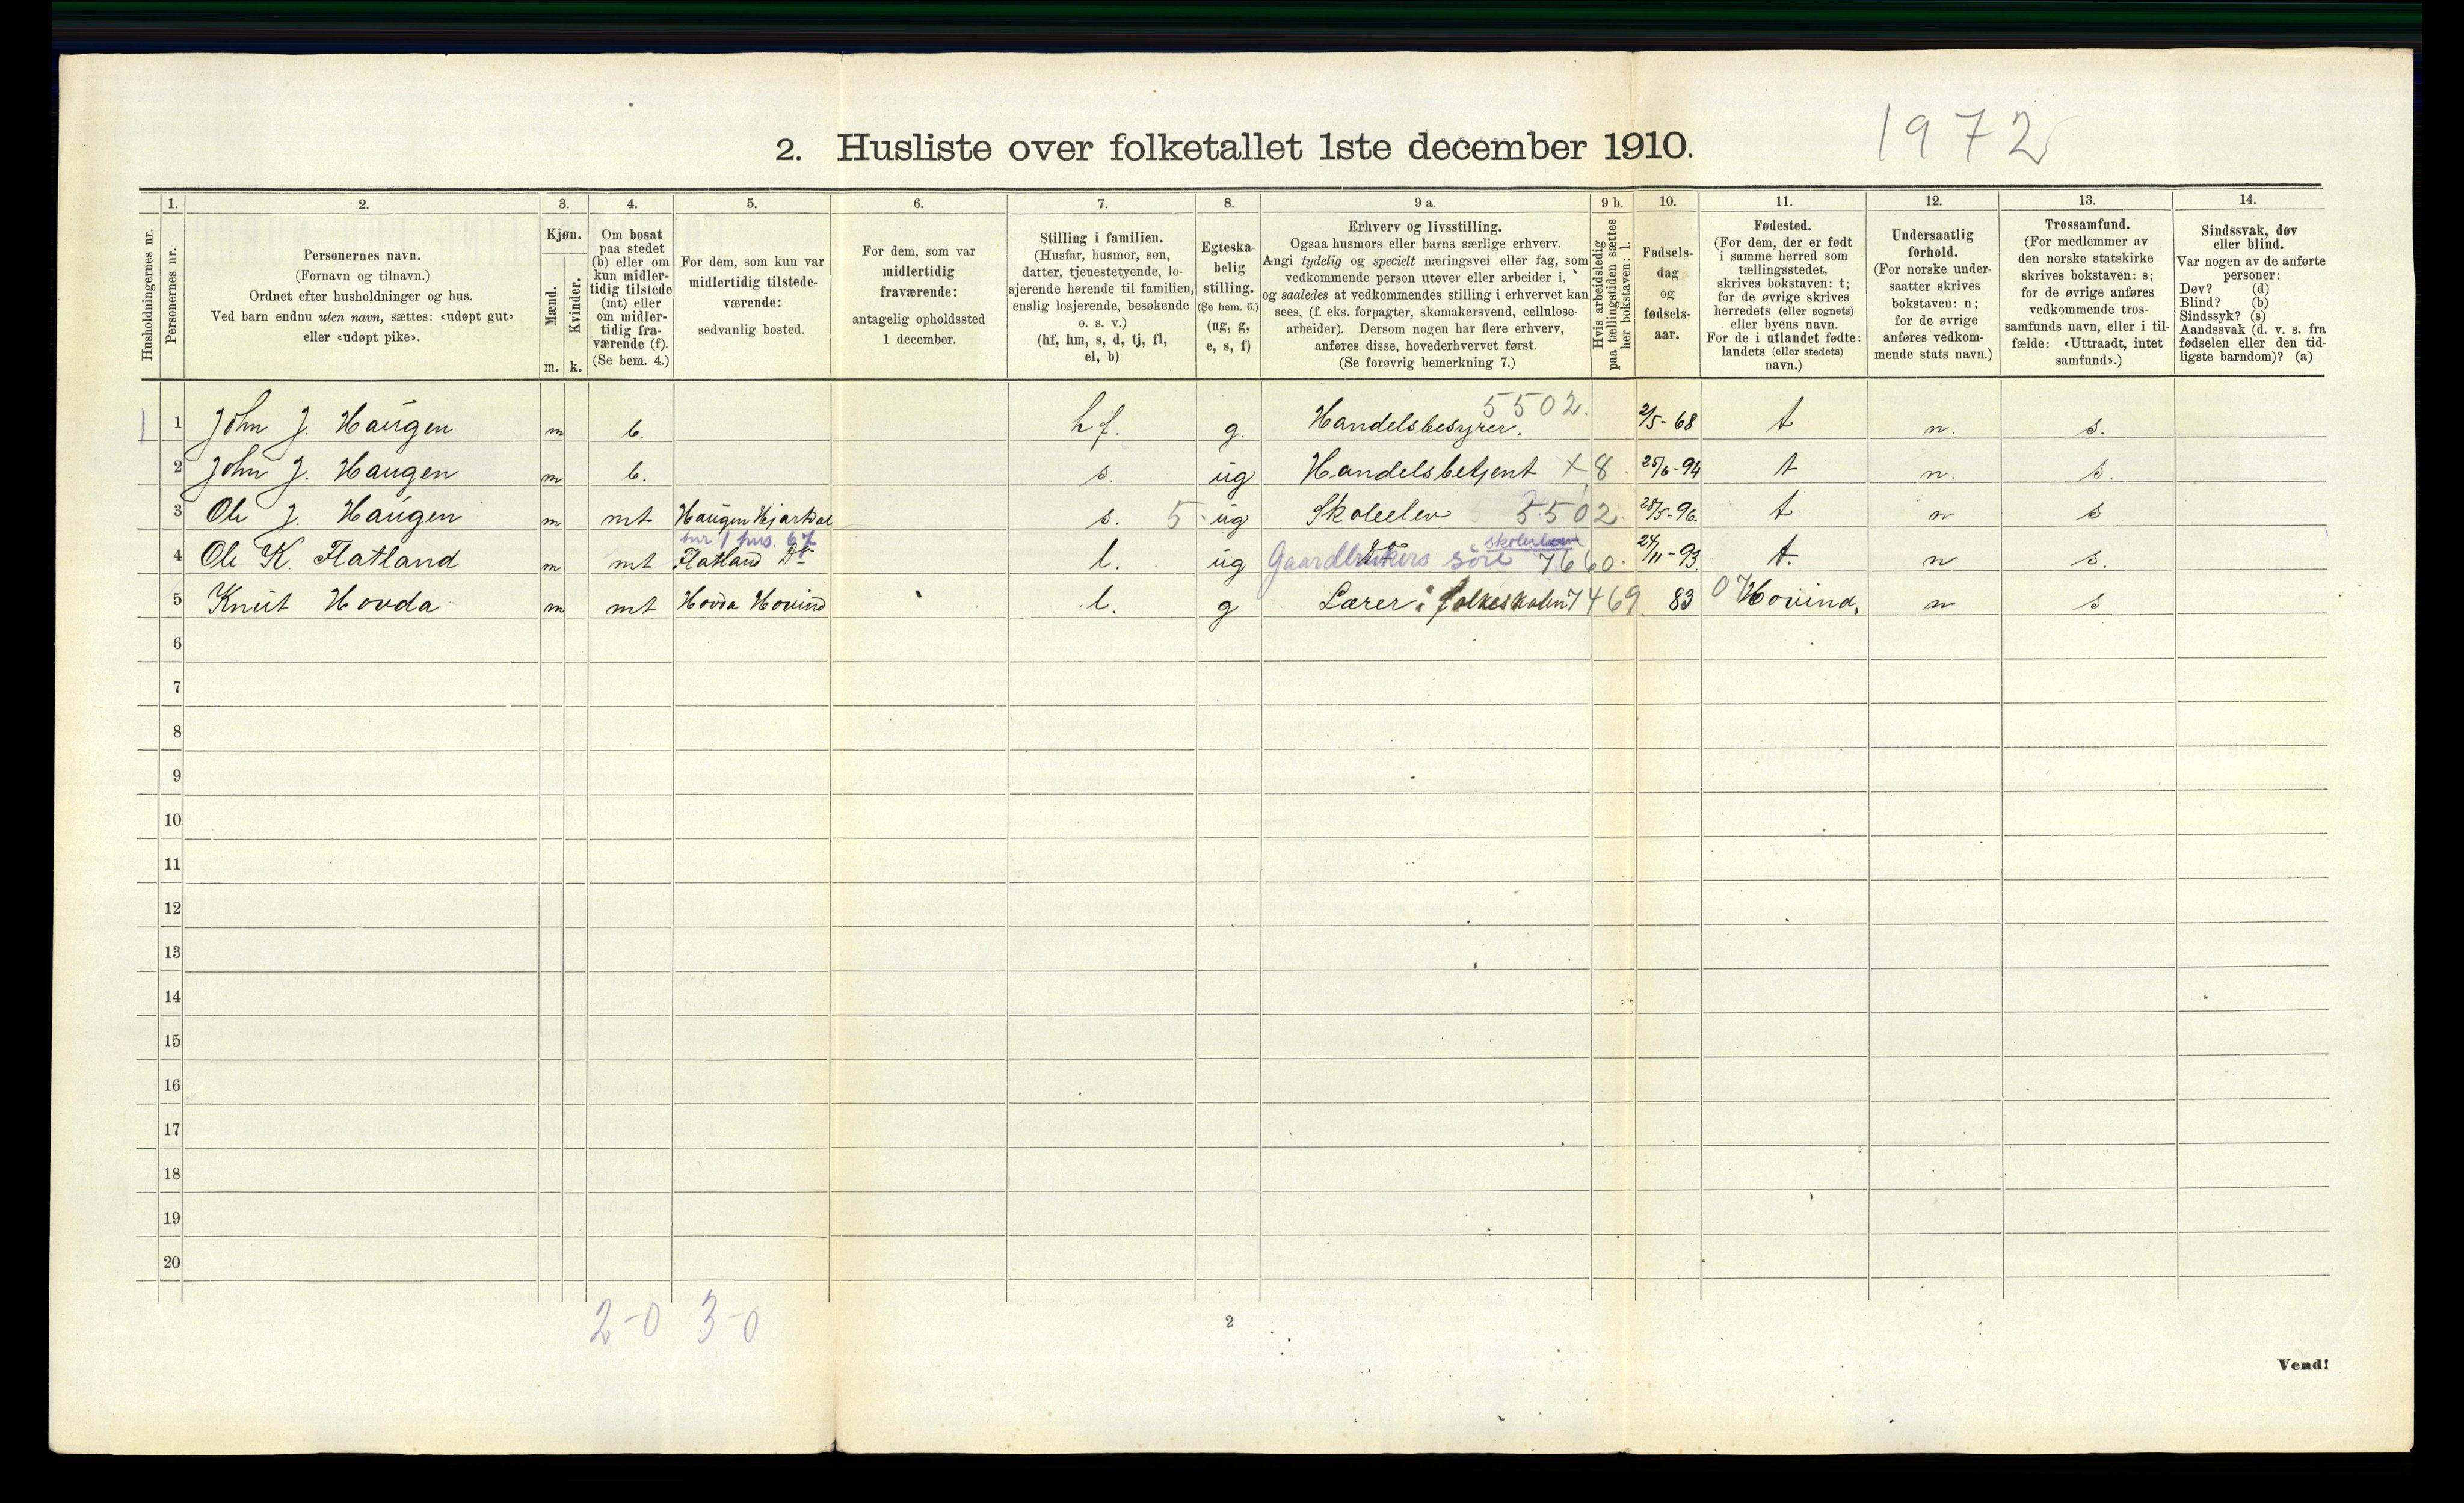 1972
2. Husliste over folketallet 1ste december 1910.
Husholdningernes nr.
1.
Personernes nr.
2.
Personernes navn.
(Fornavn og tilnavn.)
Ordnet efter husholdninger og hus.
Ved barn endnu uten navn, sættes: «udøpt gut»
eller «udøpt pike».
3.
Kjøn.
Mænd.
Kvinder.
m. k.
4.
Om bosat
paa stedet
(b) eller om
kun midler-
tidig tilstede
(mt) eller
om midler-
tidig fra-
værende (f).
(Se bem. 4.)
5.
For dem, som kun var
midlertidig tilstede-
værende:
sedvanlig bosted.
6.
For dem, som var
midlertidig
fraværende:
antagelig opholdssted
1 december.
7.
Stilling i familien.
(Husfar, husmor, søn,
datter, tjenestetyende, lo-
sjerende hørende til familien,
enslig losjerende, besøkende
o. s. v.)
(hf, hm, s, d, tj, fl,
el, b)
8.
Egteska-
belig
stilling.
(Se bem. 6.)
(ug, g,
e, s, f)
9 a.
Erhverv og livsstilling.
Ogsaa husmors eller barns særlige erhverv.
Angi tydelig og specielt næringsvei eller fag, som
vedkommende person utøver eller arbeider i,
og saaledes at vedkommendes stilling i erhvervet kan
sees, (f. eks. forpagter, skomakersvend, cellulose-
arbeider). Dersom nogen har flere erhverv,
anføres disse, hovederhvervet først.
(Se forøvrig bemerkning 7.)
9 b.
Hvis arbeidsledig
paa tællingstiden sættes
her bokstaven: l.
10.
Fødsels-
dag
og
fødsels-
aar.
11.
Fødested.
(For dem, der er født
i samme herred som
tællingsstedet,
skrives bokstaven: t;
for de øvrige skrives
herredets (eller sognets)
eller byens navn.
For de i utlandet fødte:
landets (eller stedets)
navn.)
12.
Undersaatlig
forhold.
(For norske under-
saatter skrives
bokstaven: n;
for de øvrige
anføres vedkom-
mende stats navn.)
13.
Trossamfund.
(For medlemmer av
den norske statskirke
skrives bokstaven: s;
for de øvrige anføres
vedkommende tros-
samfunds navn, eller i til-
fælde: «Uttraadt, intet
samfund».)
14.
Sindssvak, døv
eller blind.
Var nogen av de anførte
personer:
Døv? (d)
Blind? (b)
Sindssyk? (s)
Aandssvak (d. v. s. fra
fødselen eller den tid-
ligste barndom)? (a)
5502.
1 1 John J. Haugen m b. hf. g. Handelsbesyrer. 2/5-68 t n. s.
2 John J. Haugen m b. s. ug Handelsbetjent x 8. 25/6-94 t n. s.
3 Ole J. Haugen m mt Haugen Hjartdal s. 5 ug Skoleelev 5502. 28/5-96. t n s
hus. 67
4 Ole K. Flatland m mt Flatland Do l. ug Gaardbrukers 7660. 24/11-93 t. n s.
5 Knut Hovda m mt Hovda Hovind l. g Lærer i folkeskolen 7469 83 Hovind, n s
6
7
8
9
10
11
12
13
14
15
16
17
18
19
20
2-0 3-0
2
Vend!